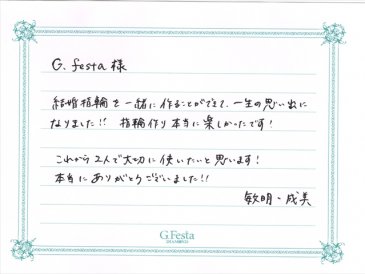 G. festa 様
結婚指輪を一緒に作ることができて、一生の思い出に
なりました!! 指輪作り本当に楽しかったです!
これから2人で大切に使いたいと思います!
本当にありがとうございました!!
敏明・成美
G.Festa